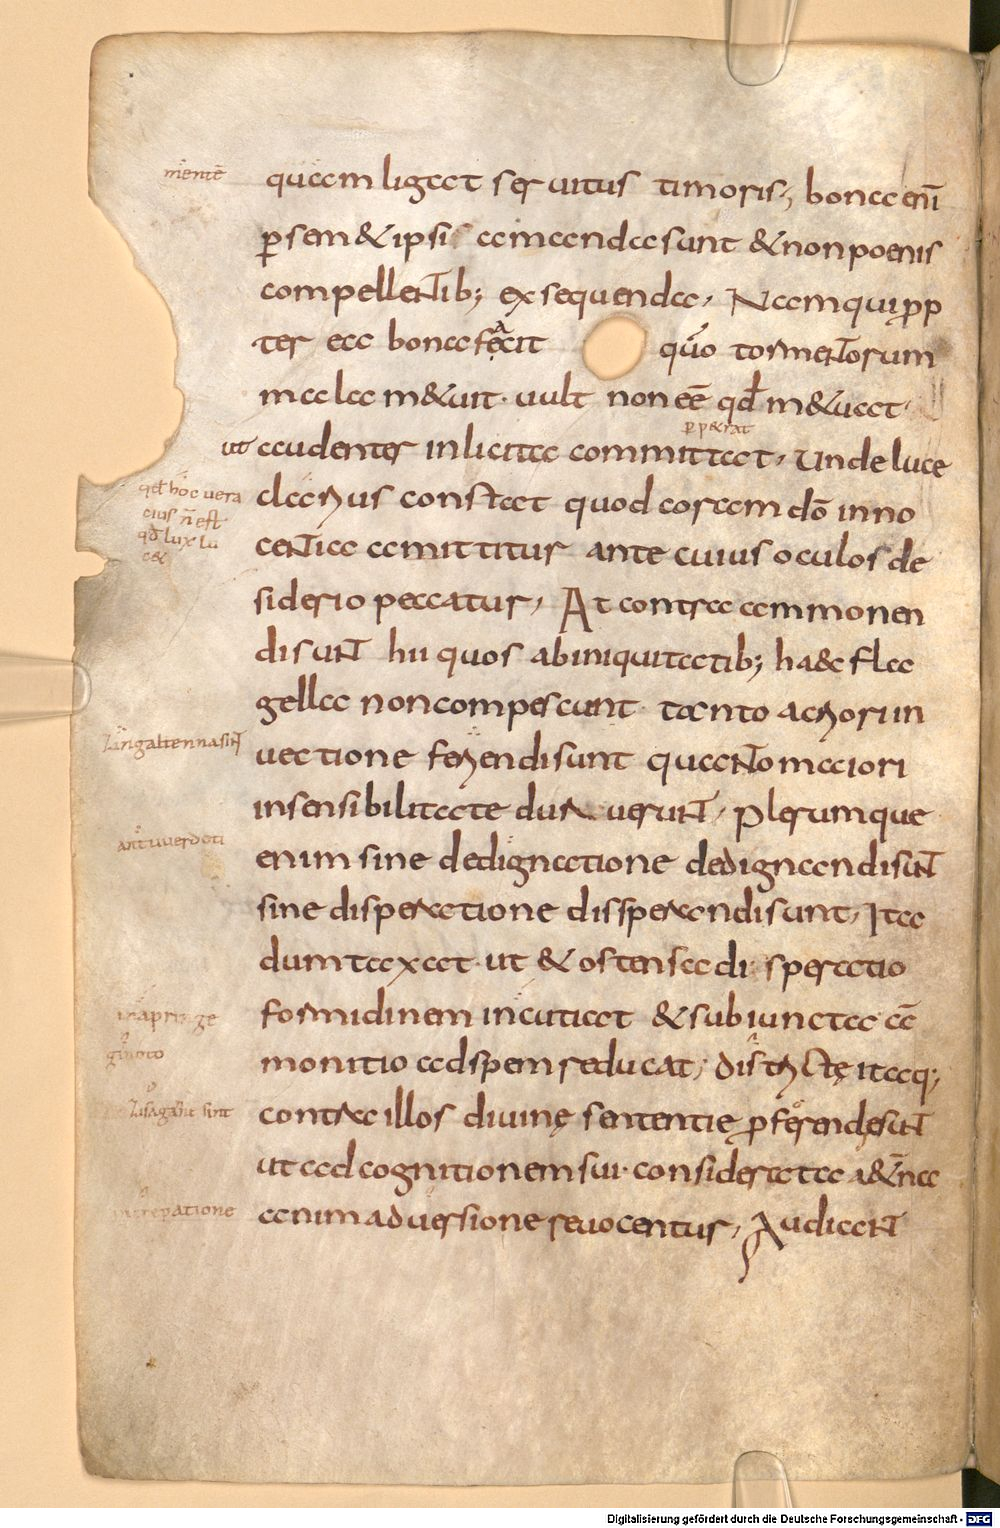 mentē
quam ligat seruitus timoris; bona enī
ꝑ sem & ipsis amanda sunt & non poenis
compellentib; exsequenda, Nam qui ꝓp
ter ea bona facit quo tormentorum
mala m&uit· uult non eē qđ m&uat·
ꝑp&rat
ut audenter inlicita committat, Unde luce
clarius constat quod coram dō inno
qđ hoc uera
eius n̄ est
qđ lux lu
c&
centia amittitur ante cuius oculos de
siderio peccatur, At contra ammonen
di sunt hii quos ab iniquitatib; haec fla
gella non compescunt· tanto acriori in
uectione feriendi sunt quanto maiori
insensibilitate duruerunt, Plerumque
enim sine dedignatione dedignandi sunt
sine disperatione dissperandi sunt, Ita
dumtaxat· ut & ostensa disperatio
formidinem incutiat & subiuncta am̄
monitio ad spem reducat; districtę itaq;
contra illos diuinę sententię ꝓferendę sunt
ut ad cognitionem sui· considerata aet̄na
increpatione
animaduersione reuocentur, Audiant
Digitalisierung gefördert durch die Deutsche Forschungsgemeinschaft - DFG